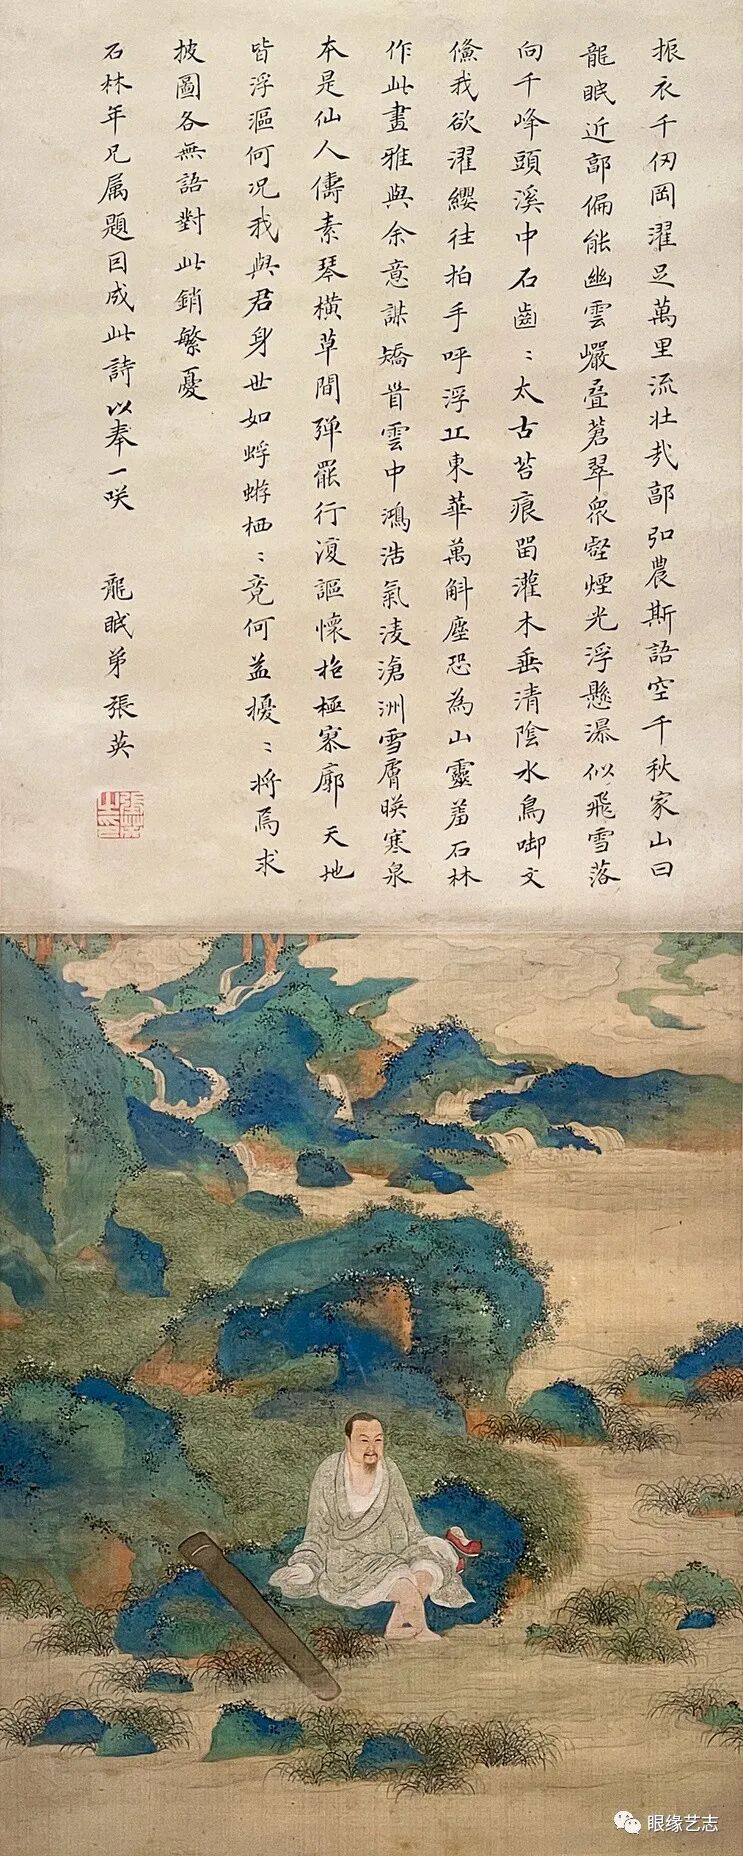 振衣千仞岡濯足萬里流壯哉郭弘農斯語空千秋家山曰
龍眠近郭偏能幽雲巘疊蒼翠衆壑煙光浮懸瀑似飛雪落
向千峰頭溪中石齒〻太古苔痕留灌木垂清陰水鳥啣文
鯈我欲濯纓往拍手呼浮丘東華萬斛塵恐為山靈羞石林
作此畫雅與余意謀矯首雲中鴻浩氣凌滄洲雪膚映寒泉
本是仙人儔素琴橫草間彈罷行復謳懷抱極寥廓天地
皆浮漚何況我與君身世如蜉蝣栖〻竟何益擾〻將焉求
披圖各無語對此銷繁憂
石林年兄属題因成此詩以奉一咲 龍眠弟張英
張英之印
眼缘艺志